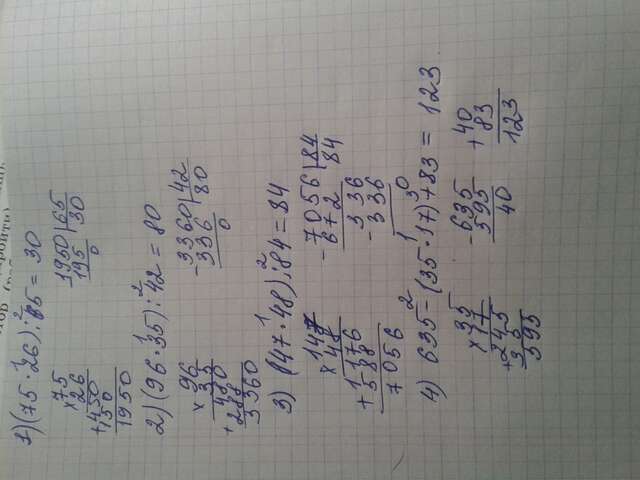 1) (75·26):65=30
×75
26
+450
150
1950
1950|65
195 30
0
2) (96·35):42=80
×96
35
480
+288
3360
-3360|42
336 80
0
3) (147·48):84=84
×147
48
+1176
588
7056
-7056|84
672 84
336
-336
4) 635-(35·17)+83=123
×35
17
+245
35
595
-635
595
40
+40
83
123